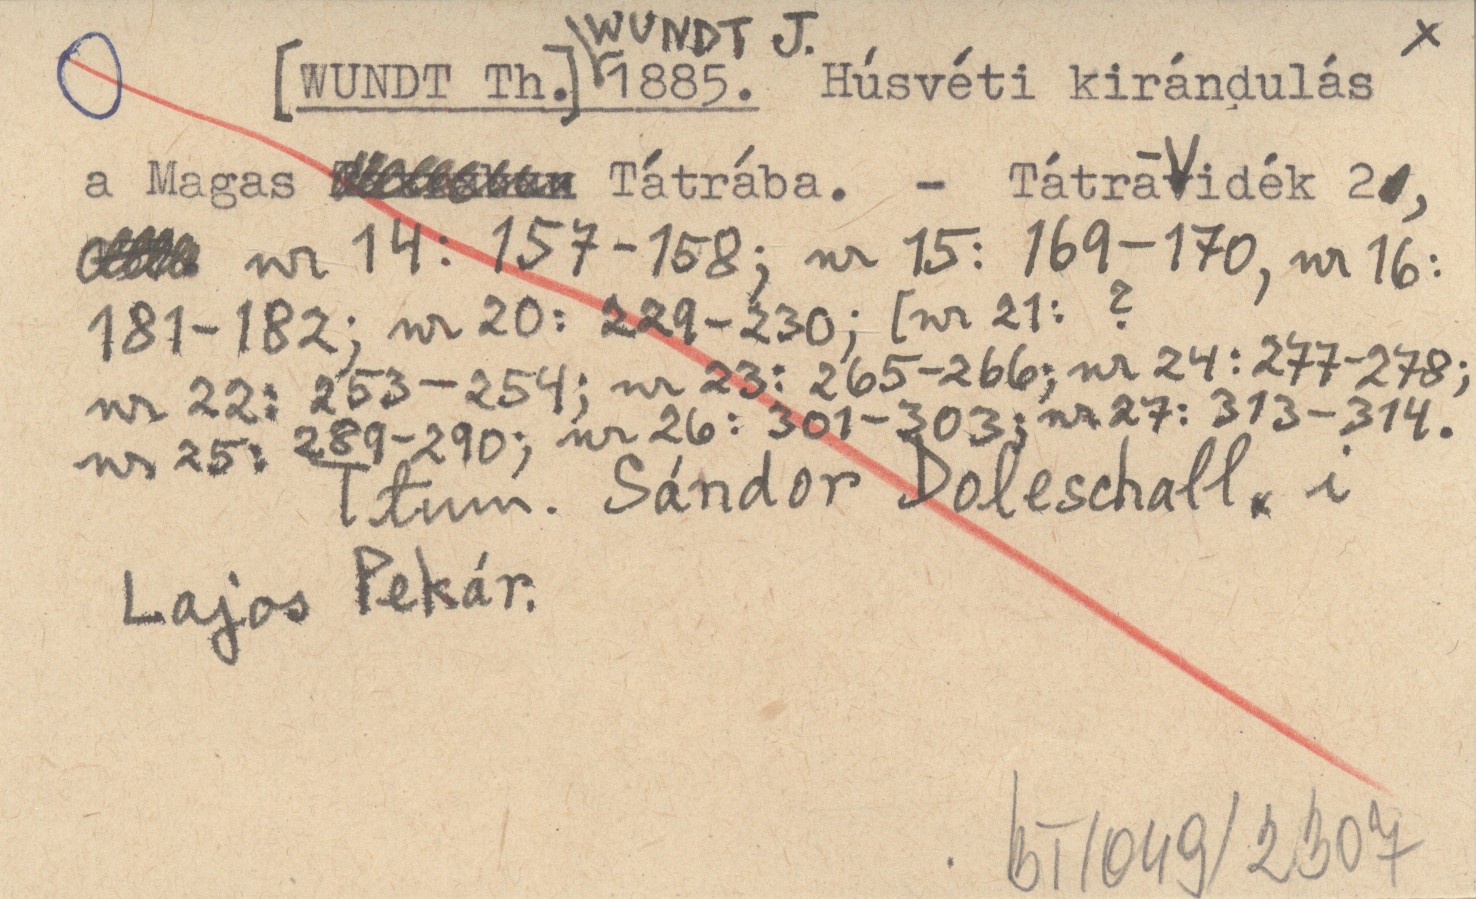 WUNDT J. x
[WUNDT Th.] 1885. Húsvéti kirándulás
a Magas Tátrába. - Tátra-Vidék 2,
nr 14: 157-158; nr 15: 169-170, nr 16:
181-182; nr 20: 229-230; [nr 21: ?
nr 22: 253-254; nr 23: 265-266; nr 24: 277-278;
nr 25: 289-290; nr 26: 301-303; nr 27: 313-314.
Tłum. Sándor Doleschall. i
Lajos Pekár.
BT/049/2307